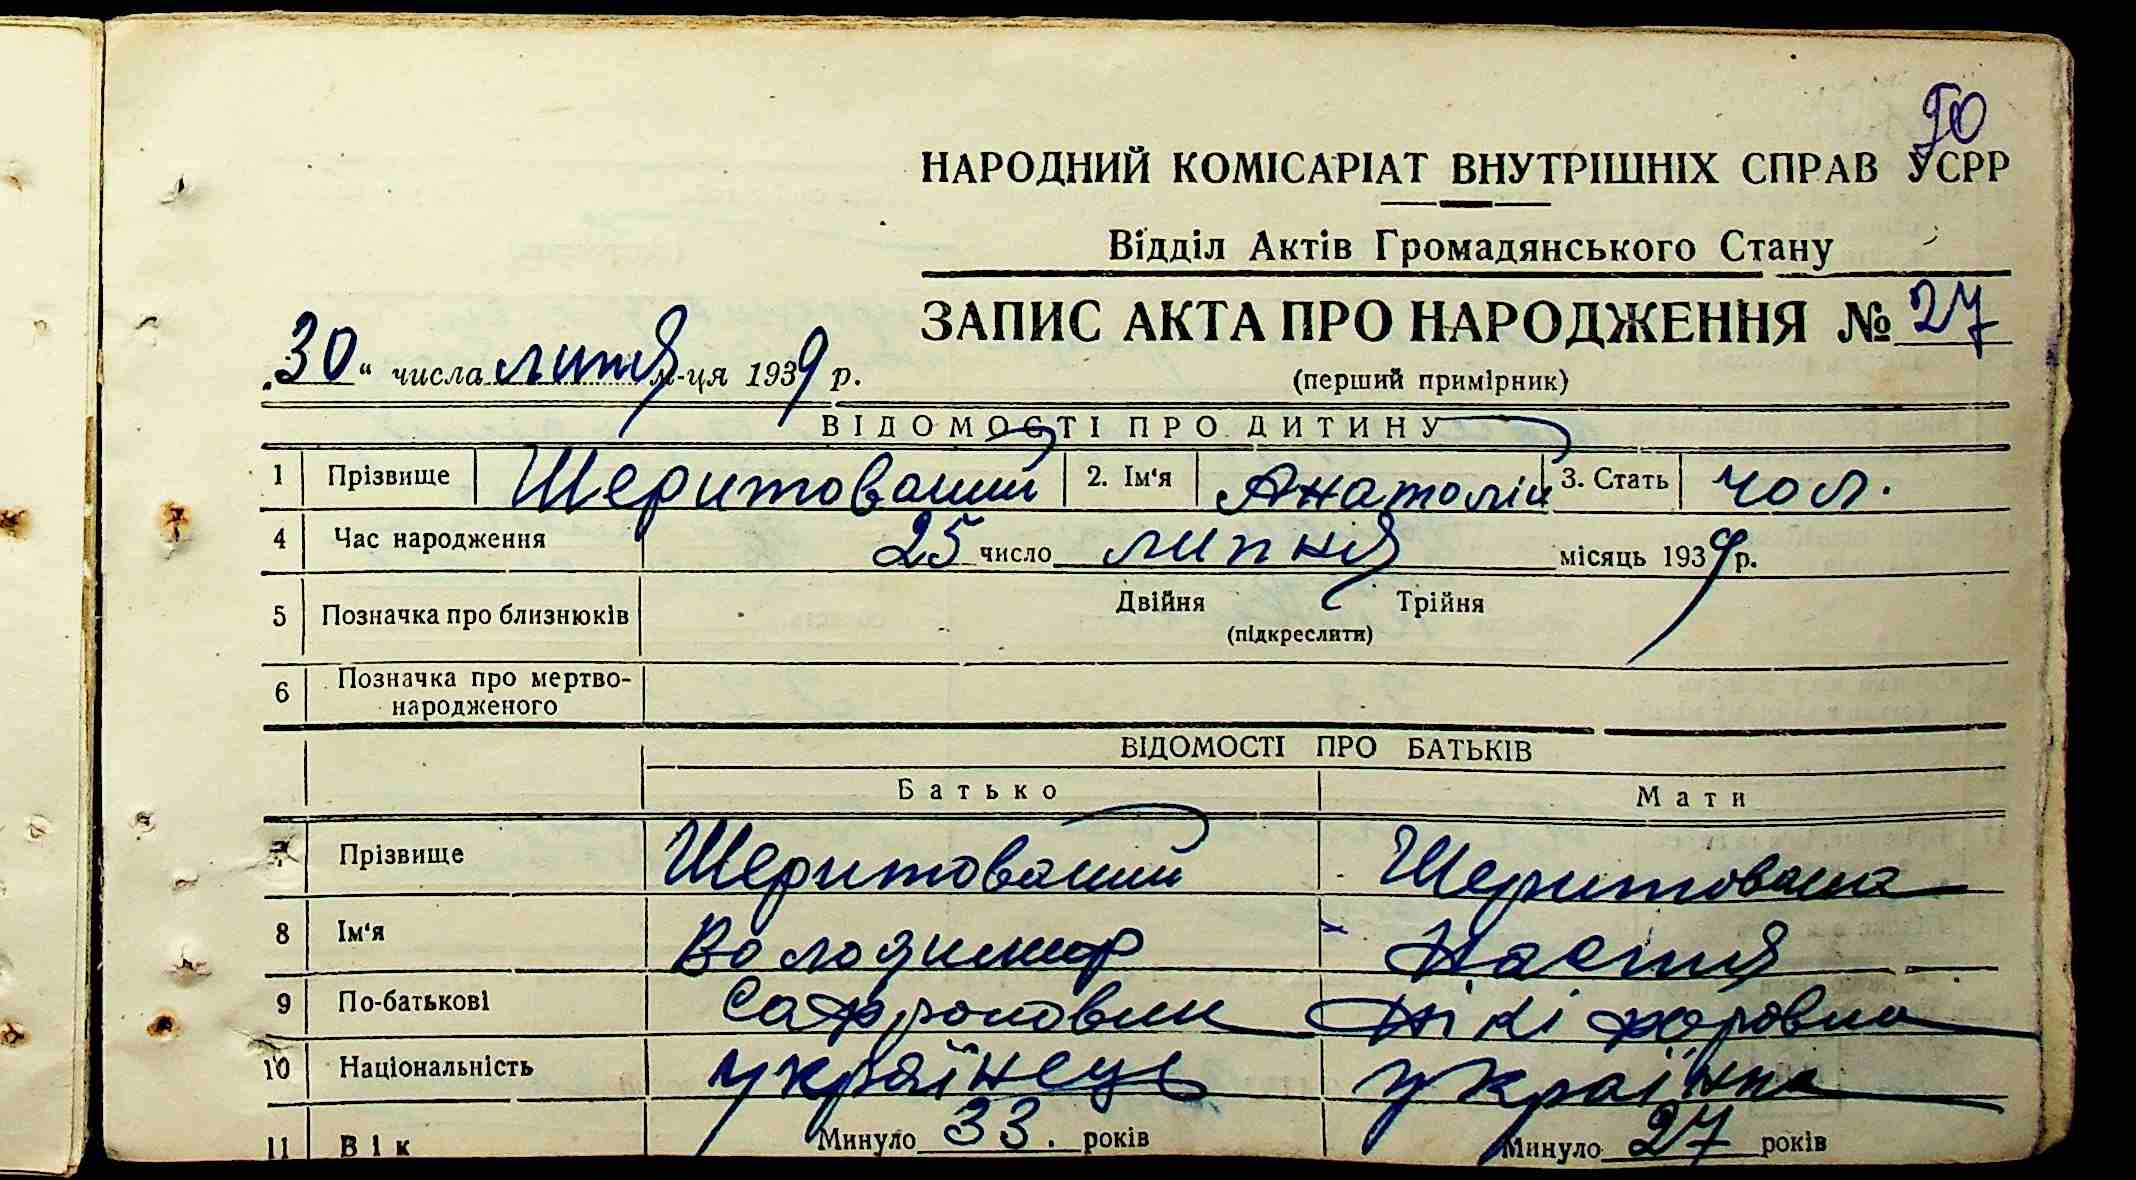 90
НАРОДНИЙ КОМІСАРІАТ ВНУТРІШНІХ СПРАВ УСРР
Відділ Актів Громадянського Стану
ЗАПИС АКТА ПРО НАРОДЖЕННЯ № 27
„30“ числа липня м-ця 1939 р.
(перший примірник)
ВІДОМОСТІ ПРО ДИТИНУ
1 Прізвище Шеритований 2. Ім'я Анатолій 3. Стать чол.
4 Час народження 25 число липня місяць 1939 р.
5 Позначка про близнюків Двійня Трійня
(підкреслити)
6 Позначка про мертво-
народженого
ВІДОМОСТІ ПРО БАТЬКІВ
Батько Мати
7 Прізвище Шеритований Шеритована
8 Ім'я Володимир Настя
9 По-батькові Сафронович Нікіфоровна
10 Національність українець українка
11 Вік Минуло 33. років Минуло 27 років